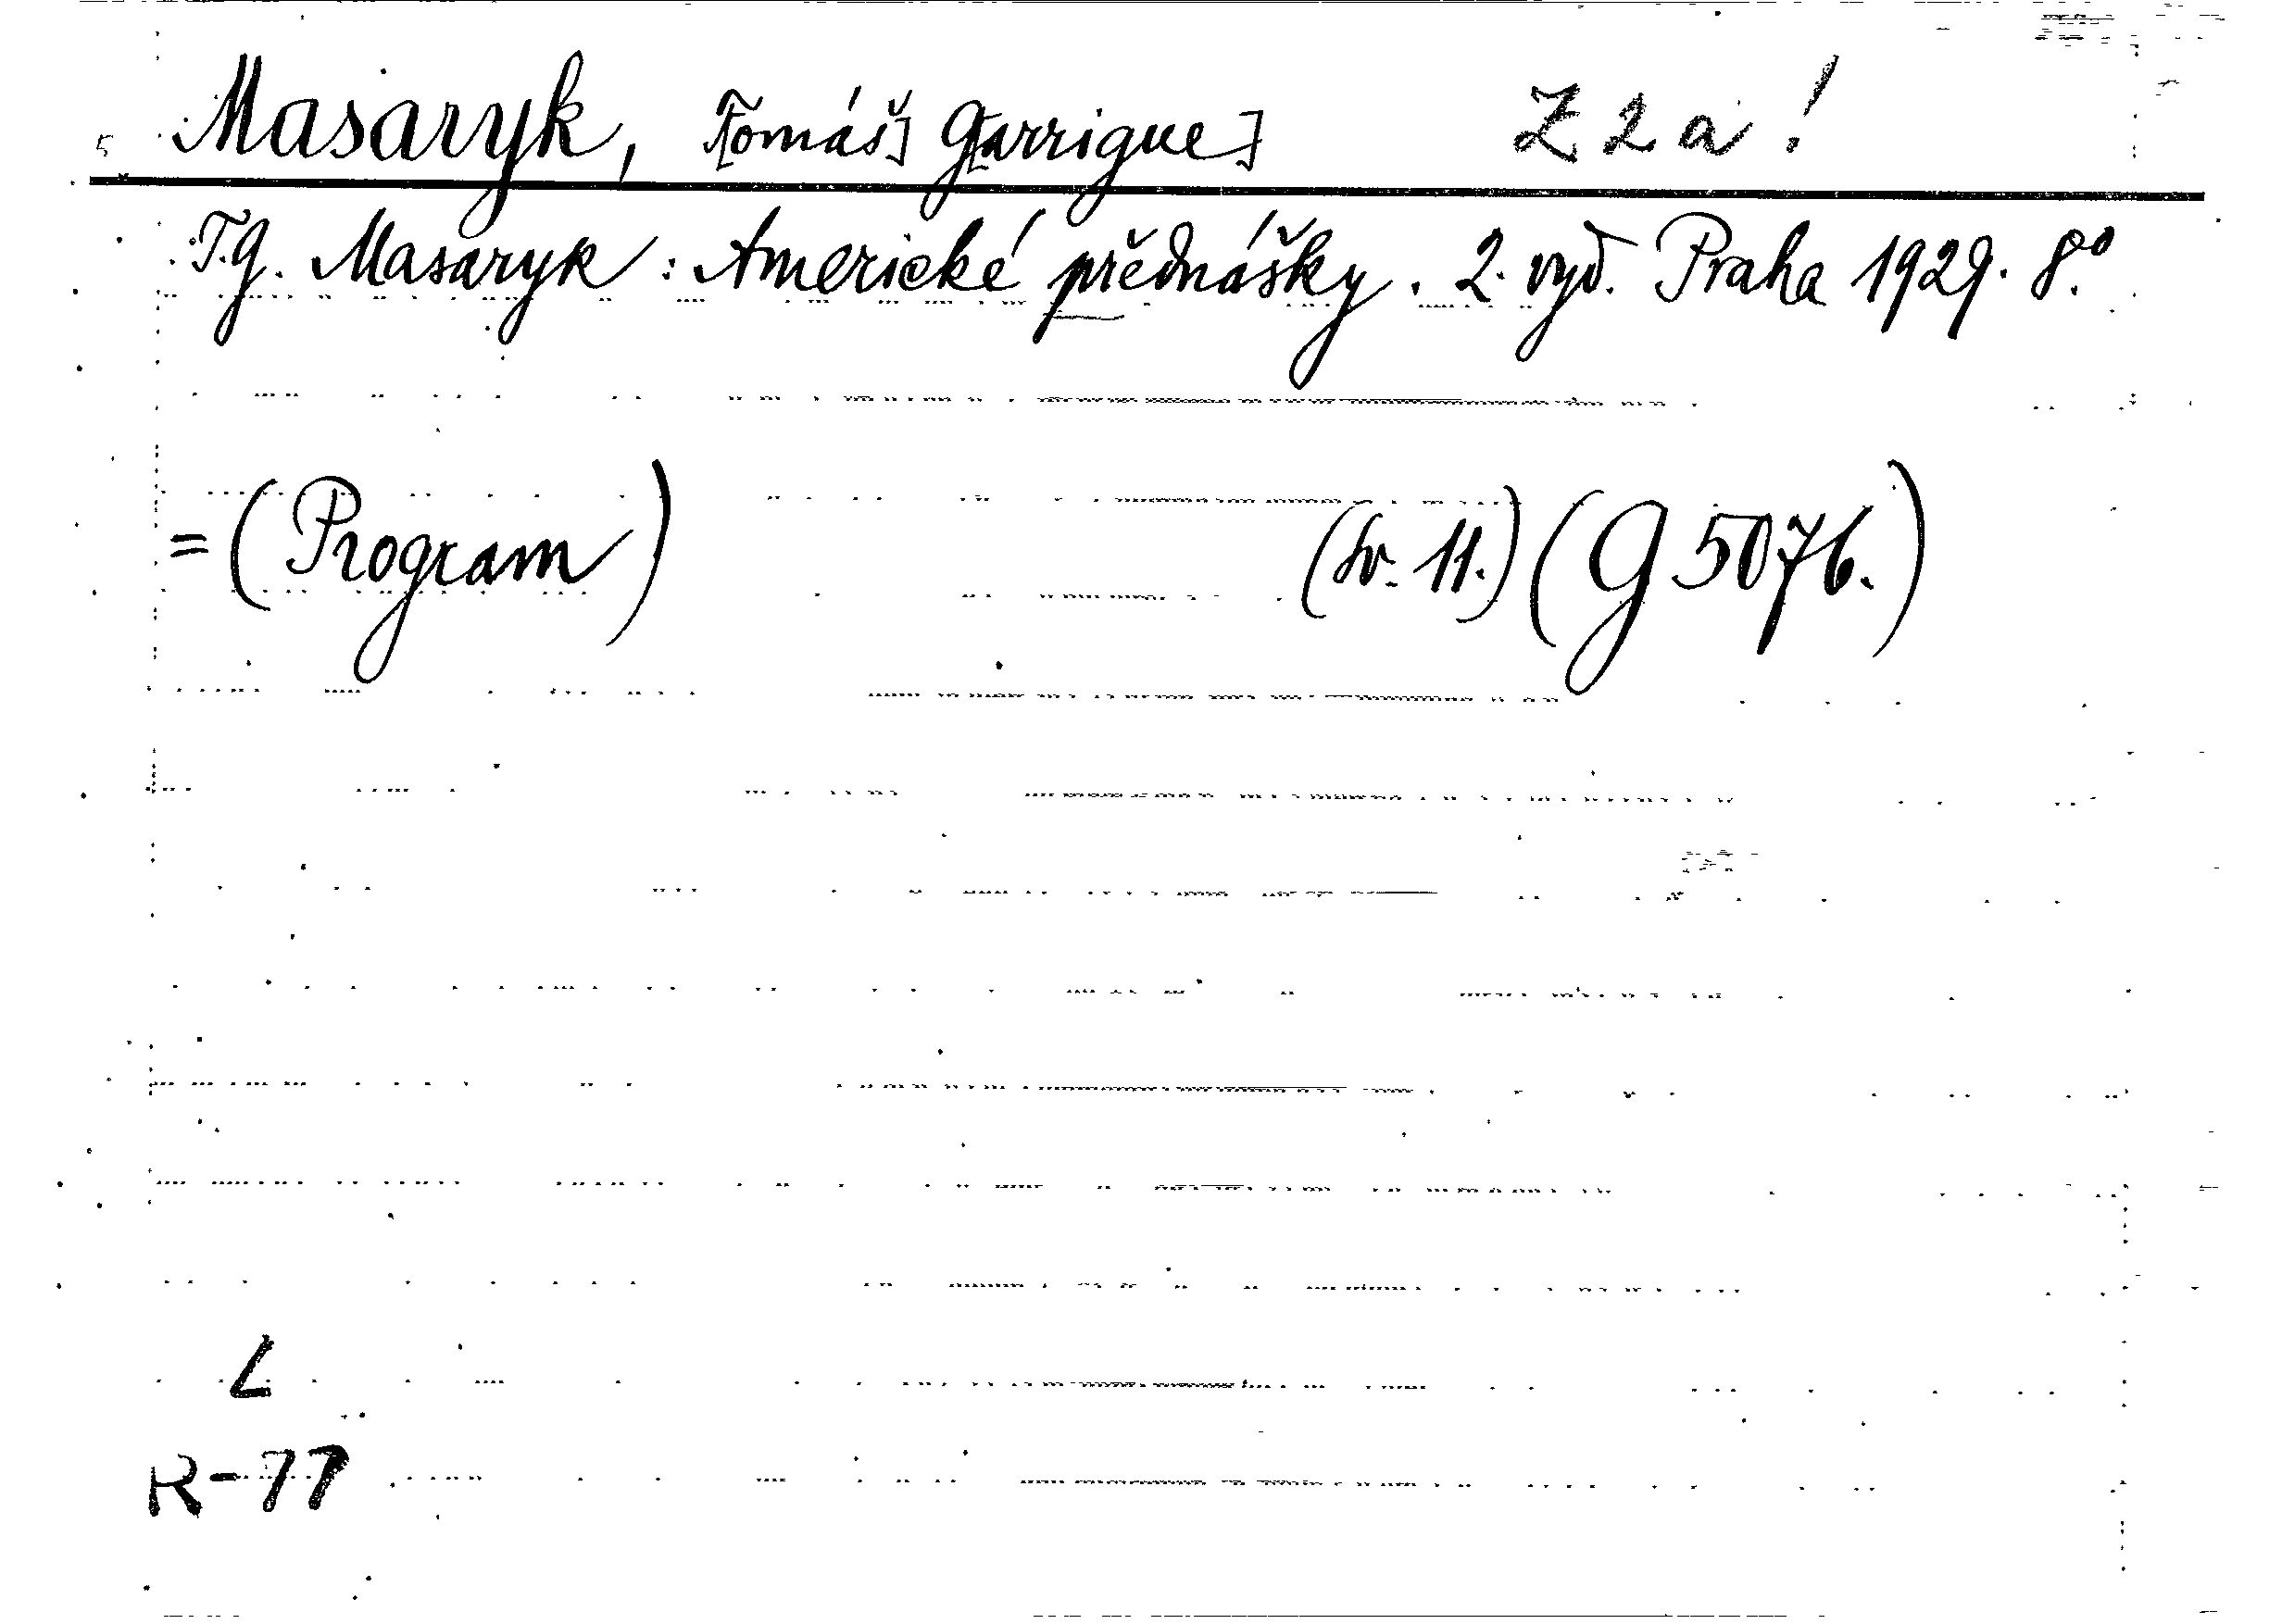 Masaryk, T[omáš] G[arrigue] Z 2 a !
T.G. Masaryk: Americké přednášky. 2. vyd. Praha 1929. 8.º
= (Program) (Sv. 11.) (G 5076.)
L
R-77